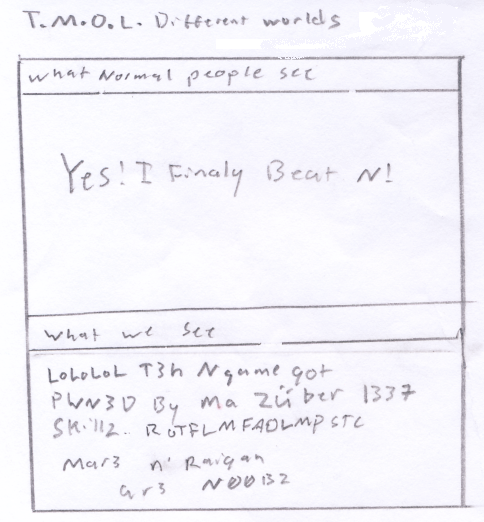 T.M.O.L. Different worlds
What Normal people see
Yes! I Finaly Beat N!
What we see
LoLoLoL T3h N game got
PWN3D By ma Züber 1337
Skillz. ROTFLMFAOLMPSTC
Mar3 n' Raigan
ar3 N00B2